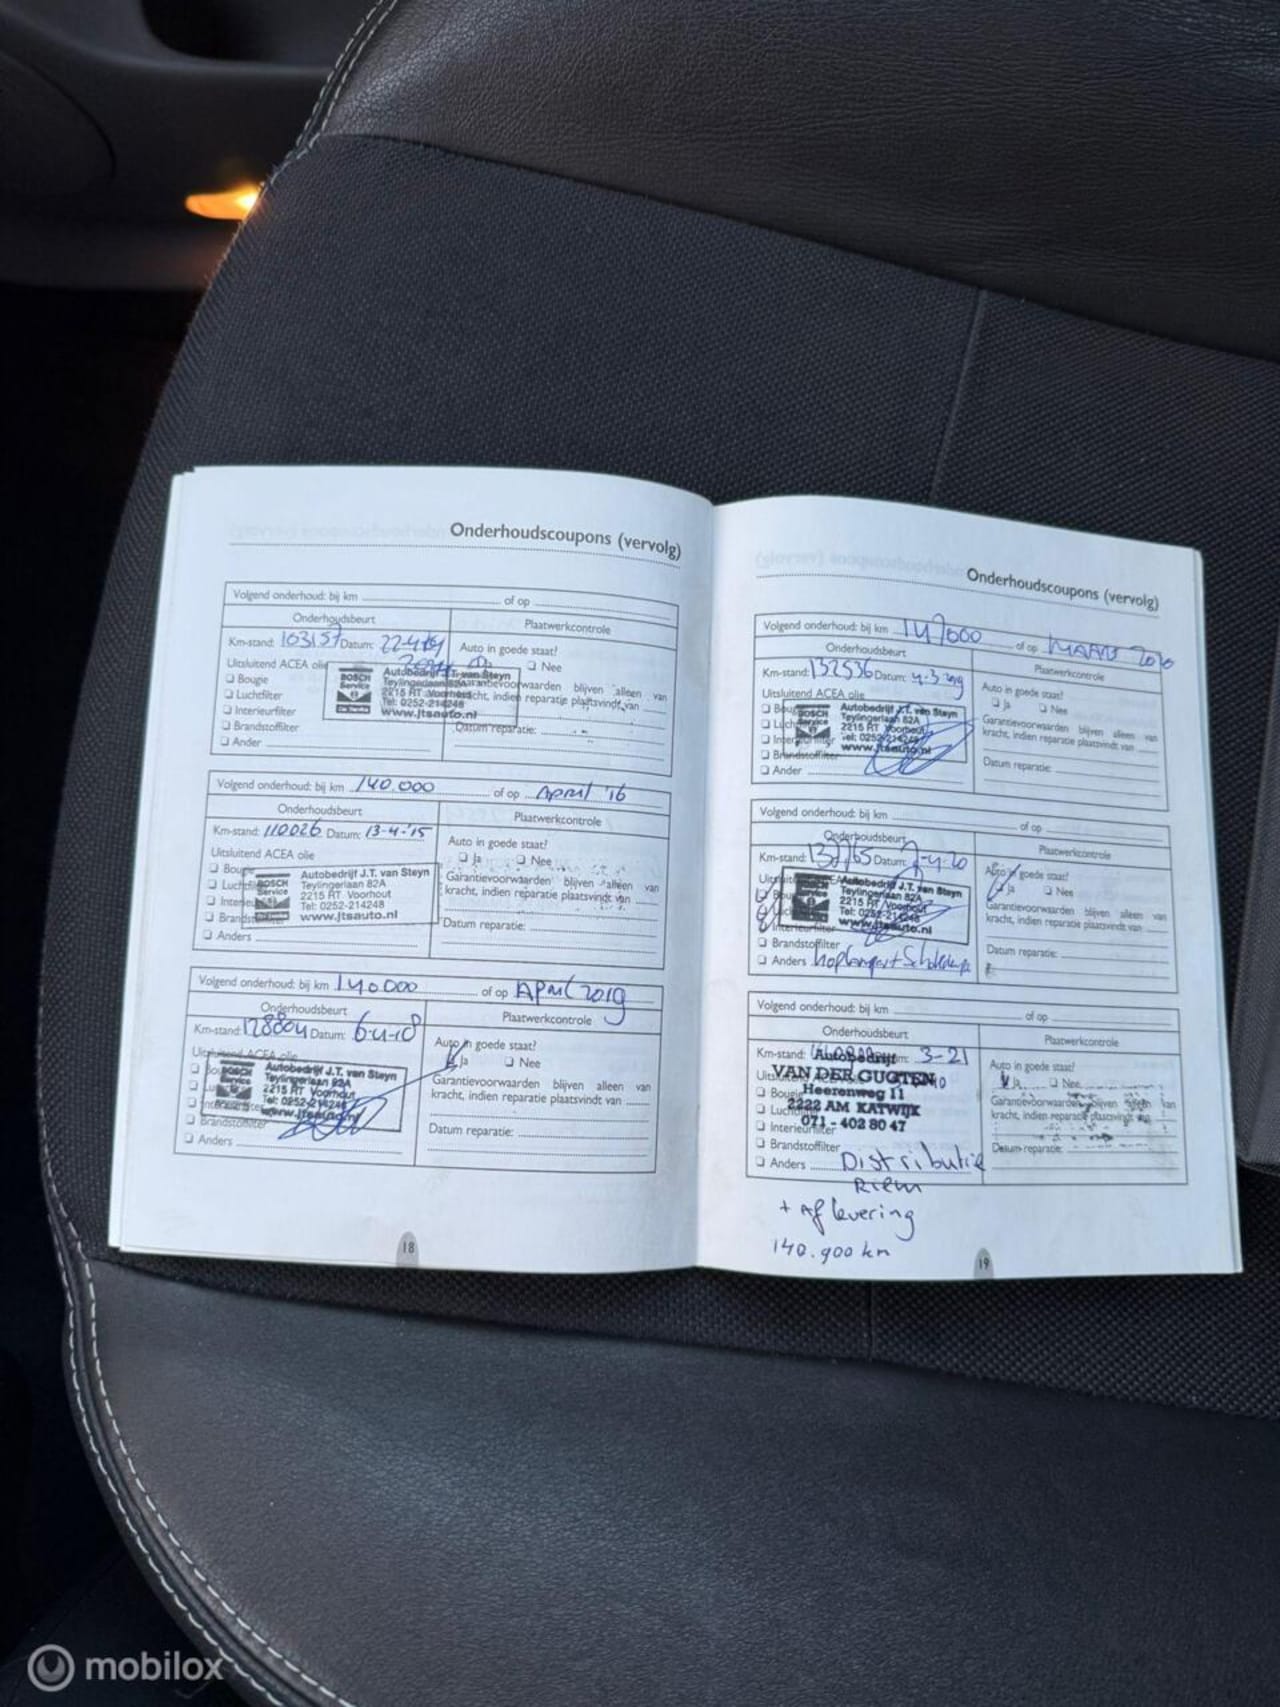 Onderhoudscoupons (vervolg)
Volgend onderhoud: bij km of op
Onderhoudsbeurt
Plaatwerkcontrole
Km-stand: 103157 Datum:
Auto in goede staat?
Ja ❑ Nee
Uitsluitend ACEA olie
❑ Bougie
❑ Luchtfilter
❑ Interieurfilter
❑ Brandstoffilter
❑ Ander
BOSCH
Service
Autobedrijf J.T. van Steyn
Teylingerlaan 82A
2215 RT Voorhout
Tel: 0252-214248
www.jtsauto.nl
blijven alleen van
kracht, indien reparatie plaatsvindt van
Datum reparatie:
Volgend onderhoud: bij km 140.000 of op April '16
Onderhoudsbeurt
Plaatwerkcontrole
Km-stand: 110026 Datum: 13-4-'15
Auto in goede staat?
❑ Ja ❑ Nee
Uitsluitend ACEA olie
BOSCH
Service
Autobedrijf J.T. van Steyn
Teylingerlaan 82A
2215 RT Voorhout
Tel: 0252-214248
www.jtsauto.nl
❑ Anders
Garantievoorwaarden blijven alleen van
kracht, indien reparatie plaatsvindt van
Datum reparatie:
Volgend onderhoud: bij km 140000 of op April 2019
Onderhoudsbeurt
Plaatwerkcontrole
Km-stand: 128804 Datum: 6-4-18
Auto in goede staat?
Ja ❑ Nee
Uitsluitend ACEA olie
BOSCH
Service
Autobedrijf J.T. van Steyn
Teylingerlaan 82A
2215 RT Voorhout
Tel: 0252-214248
www.jtsauto.nl
❑ Brandstoffilter
❑ Anders
Garantievoorwaarden blijven alleen van
kracht, indien reparatie plaatsvindt van
Datum reparatie:
18
Onderhoudscoupons (vervolg)
Volgend onderhoud: bij km 147000 of op
Onderhoudsbeurt
Plaatwerkcontrole
Km-stand: 132536 Datum: 4-3-2019
Auto in goede staat?
❑ Ja ❑ Nee
Uitsluitend ACEA olie
BOSCH
Service
Autobedrijf J.T. van Steyn
Teylingerlaan 82A
2215 RT Voorhout
Tel: 0252-214248
www.jtsauto.nl
❑ Brandstoffilter
❑ Ander
Garantievoorwaarden blijven alleen van
kracht, indien reparatie plaatsvindt van
Datum reparatie:
Volgend onderhoud: bij km of op
Onderhoudsbeurt
Plaatwerkcontrole
Km-stand: Datum:
Auto in goede staat?
Ja ❑ Nee
BOSCH
Service
Autobedrijf J.T. van Steyn
Teylingerlaan 82A
2215 RT Voorhout
Tel: 0252-214248
www.jtsauto.nl
Interieurfilter
❑ Brandstoffilter
❑ Anders
Garantievoorwaarden blijven alleen van
kracht, indien reparatie plaatsvindt van
Datum reparatie:
Volgend onderhoud: bij km of op
Onderhoudsbeurt
Plaatwerkcontrole
Km-stand: 3-21
Auto in goede staat?
Ja ❑ Nee
Autobedrijf
VAN DER GUGTEN
Heerenweg 11
2222 AM KATWIJK
071 - 402 80 47
❑ Bougie
❑ Luchtfilter
❑ Interieurfilter
❑ Brandstoffilter
❑ Anders Distributie
Riem
+ Aflevering
140.900 km
Garantievoorwaarden blijven alleen van
kracht, indien reparatie plaatsvindt van
Datum reparatie:
19
mobilox